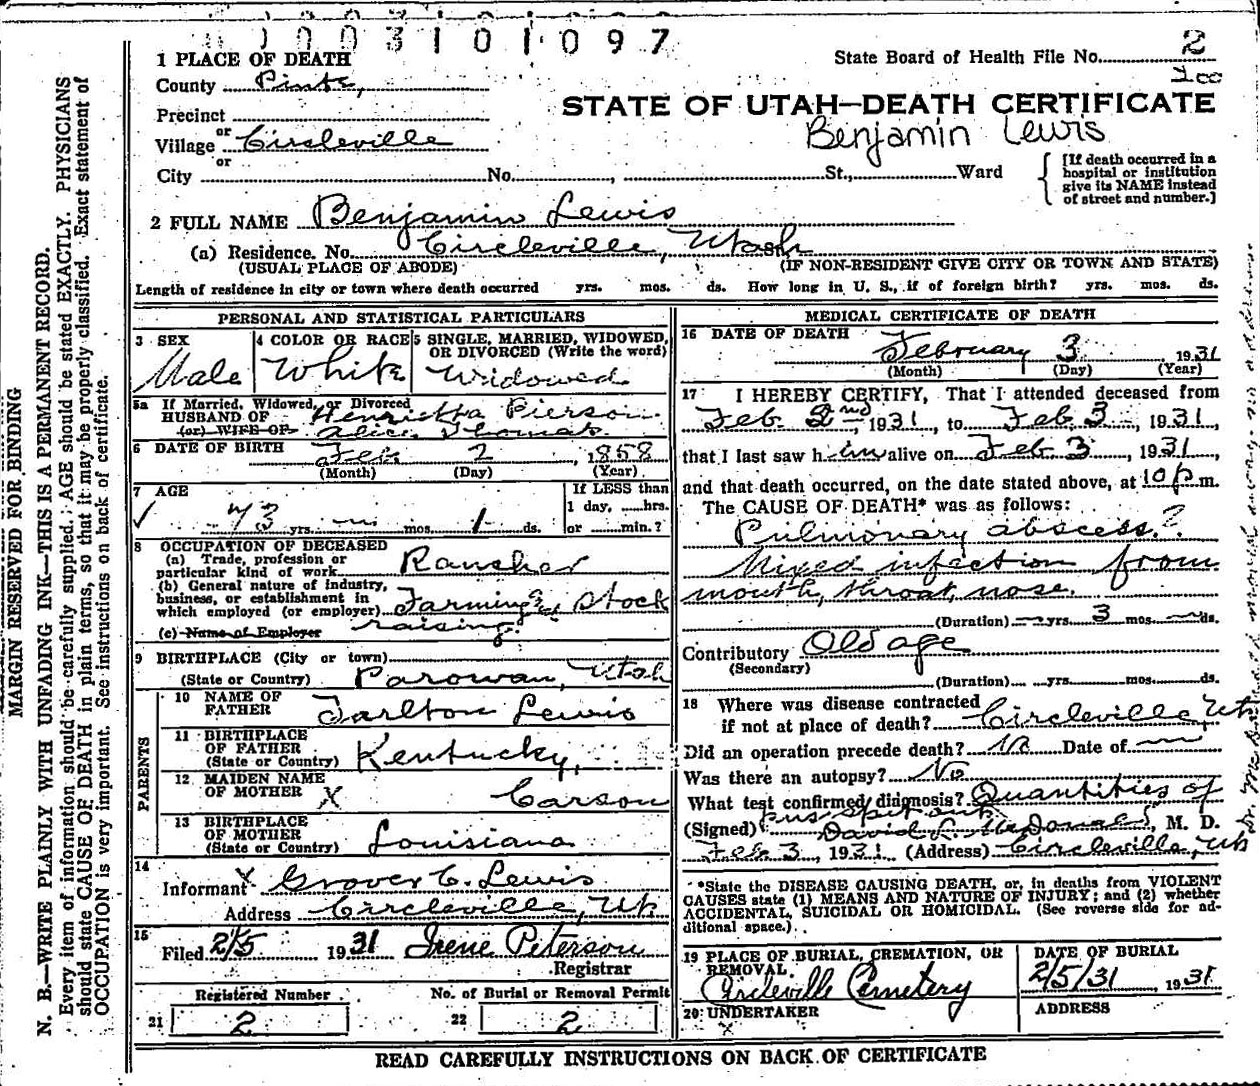 1003101097
State Board of Health File No. 2
1 PLACE OF DEATH
County Piute,
STATE OF UTAH—DEATH CERTIFICATE
Precinct
Benjamin Lewis
or
Village Circleville
or
City No. , St., Ward
[If death occurred in a
hospital or institution
give its NAME instead
of street and number.]
2 FULL NAME Benjamin Lewis
(a) Residence. No. Circleville, Utah
(USUAL PLACE OF ABODE) (IF NON-RESIDENT GIVE CITY OR TOWN AND STATE)
Length of residence in city or town where death occurred yrs. mos. ds. How long in U. S., if of foreign birth? yrs. mos. ds.
PERSONAL AND STATISTICAL PARTICULARS
3 SEX
Male
4 COLOR OR RACE
White
5 SINGLE, MARRIED, WIDOWED,
OR DIVORCED (Write the word)
Widowed
5a If Married, Widowed, or Divorced
HUSBAND OF Henrietta Pierson
(or) WIFE OF Alice Thomas
6 DATE OF BIRTH Feb. 2, 1858
(Month) (Day) (Year)
7 AGE
73 yrs. — mos. 1 ds.
If LESS than
1 day, hrs.
or min.?
8 OCCUPATION OF DECEASED
(a) Trade, profession or
particular kind of work Rancher
(b) General nature of industry,
business, or establishment in
which employed (or employer) Farming & Stock
raising.
(c) Name of Employer
9 BIRTHPLACE (City or town)
(State or Country) Parowan, Utah
PARENTS
10 NAME OF
FATHER Tarlton Lewis
11 BIRTHPLACE
OF FATHER
(State or Country) Kentucky,
12 MAIDEN NAME
OF MOTHER X Carson
13 BIRTHPLACE
OF MOTHER
(State or Country) Louisiana
14
Informant X Grover C. Lewis
Address Circleville, Ut.
15
Filed 2/5 1931 Irene Peterson
Registrar
Registered Number
21 2
No. of Burial or Removal Permit
22 2
MEDICAL CERTIFICATE OF DEATH
16 DATE OF DEATH
February 3 1931
(Month) (Day) (Year)
17 I HEREBY CERTIFY, That I attended deceased from
Feb. 2nd, 1931, to Feb 3, 1931,
that I last saw h im alive on Feb 3, 1931
and that death occurred, on the date stated above, at 10 p m.
The CAUSE OF DEATH* was as follows:
Pulmonary abscess.?
Mixed infection from
mouth, throat, nose.
(Duration) — yrs. 3 mos. — ds.
Contributory Old age
(Secondary)
(Duration) yrs. mos. ds.
18 Where was disease contracted
if not at place of death? Circleville, Ut
Did an operation precede death? No Date of —
Was there an autopsy? No
What test confirmed diagnosis? Quantities of
pus spit out
(Signed) David L. McDonald, M. D.
Feb 3, 1931 (Address) Circleville, Ut
*State the DISEASE CAUSING DEATH, or, in deaths from VIOLENT
CAUSES state (1) MEANS AND NATURE OF INJURY; and (2) whether
ACCIDENTAL, SUICIDAL OR HOMICIDAL. (See reverse side for ad-
ditional space.)
19 PLACE OF BURIAL, CREMATION, OR
REMOVAL
Circleville Cemetery
DATE OF BURIAL
2/5/31, 1931
20 UNDERTAKER
X
ADDRESS
READ CAREFULLY INSTRUCTIONS ON BACK OF CERTIFICATE
MARGIN RESERVED FOR BINDING
N. B.—WRITE PLAINLY WITH UNFADING INK—THIS IS A PERMANENT RECORD.
Every item of information should be carefully supplied. AGE should be stated EXACTLY. PHYSICIANS
should state CAUSE OF DEATH in plain terms, so that it may be properly classified. Exact statement of
OCCUPATION is very important. See instructions on back of certificate.